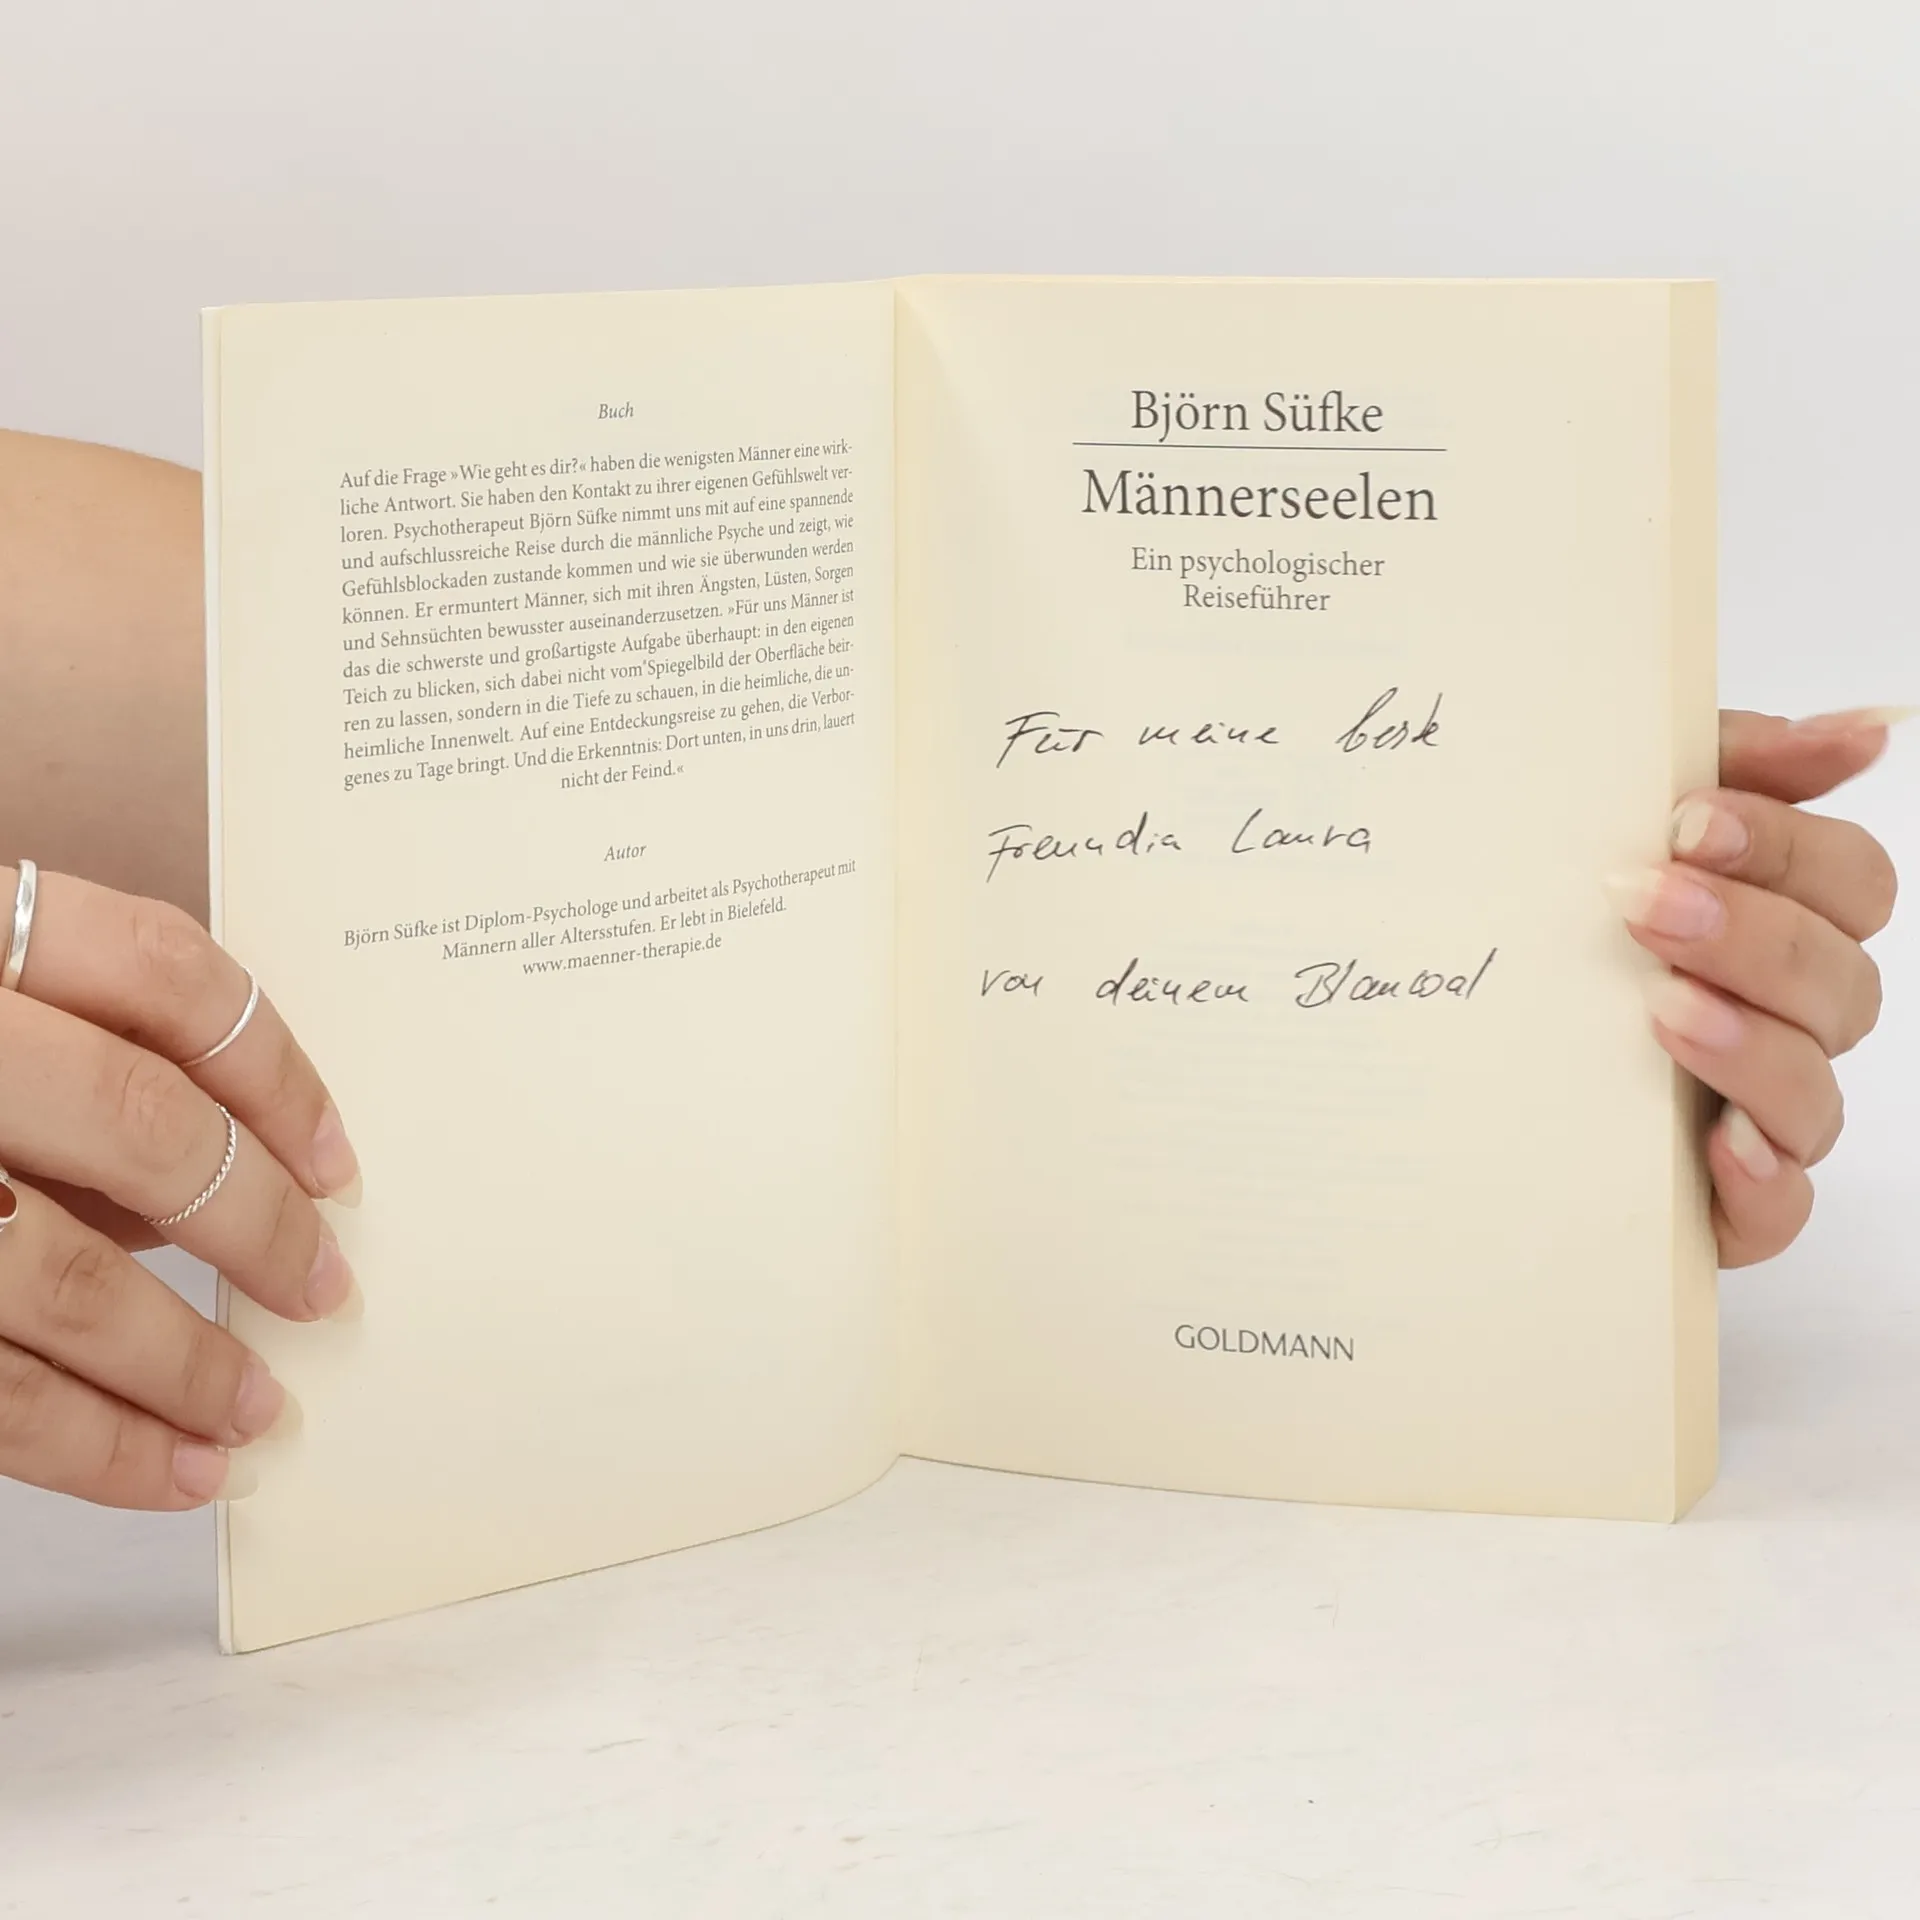 Buch
Auf die Frage »Wie geht es dir?« haben die wenigsten Männer eine wirk-
liche Antwort. Sie haben den Kontakt zu ihrer eigenen Gefühlswelt ver-
loren. Psychotherapeut Björn Süfke nimmt uns mit auf eine spannende
und aufschlussreiche Reise durch die männliche Psyche und zeigt, wie
Gefühlsblockaden zustande kommen und wie sie überwunden werden
können. Er ermuntert Männer, sich mit ihren Ängsten, Lüsten, Sorgen
und Sehnsüchten bewusster auseinanderzusetzen. »Für uns Männer ist
das die schwerste und großartigste Aufgabe überhaupt: in den eigenen
Teich zu blicken, sich dabei nicht vom Spiegelbild der Oberfläche beir-
ren zu lassen, sondern in die Tiefe zu schauen, in die heimliche, die un-
heimliche Innenwelt. Auf eine Entdeckungsreise zu gehen, die Verbor-
genes zu Tage bringt. Und die Erkenntnis: Dort unten, in uns drin, lauert
nicht der Feind.«
Autor
Björn Süfke ist Diplom-Psychologe und arbeitet als Psychotherapeut mit
Männern aller Altersstufen. Er lebt in Bielefeld.
www.maenner-therapie.de
Björn Süfke
Männerseelen
Ein psychologischer
Reiseführer
Für meine beste
Freundin Laura
von deinem Blauwal
GOLDMANN